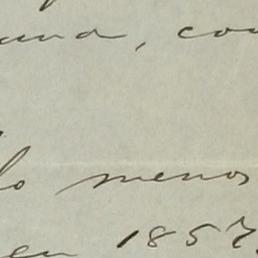 una, co
lo menos
en 1857